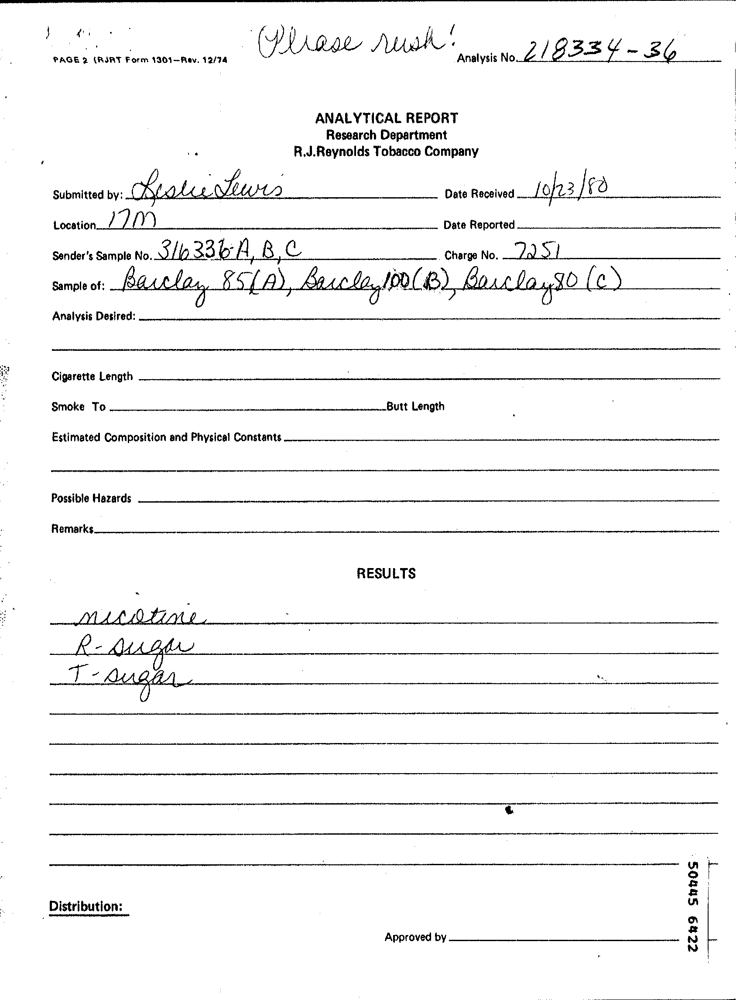 Please rush!
PAGE 2 (RJRT Form 1301—Rev. 12/74
Analysis No. 218334-36
ANALYTICAL REPORT
Research Department
R.J.Reynolds Tobacco Company
Submitted by: Leslie Lewis Date Received 10/23/80
Location 17M Date Reported
Sender's Sample No. 316336-A, B, C Charge No. 7251
Sample of: Barclay 85(A), Barclay 100(B), Barclay 80 (C)
Analysis Desired:
Cigarette Length
Smoke To Butt Length
Estimated Composition and Physical Constants
Possible Hazards
Remarks
RESULTS
nicotine
R-sugar
T-sugar
Distribution:
Approved by
50445 6422